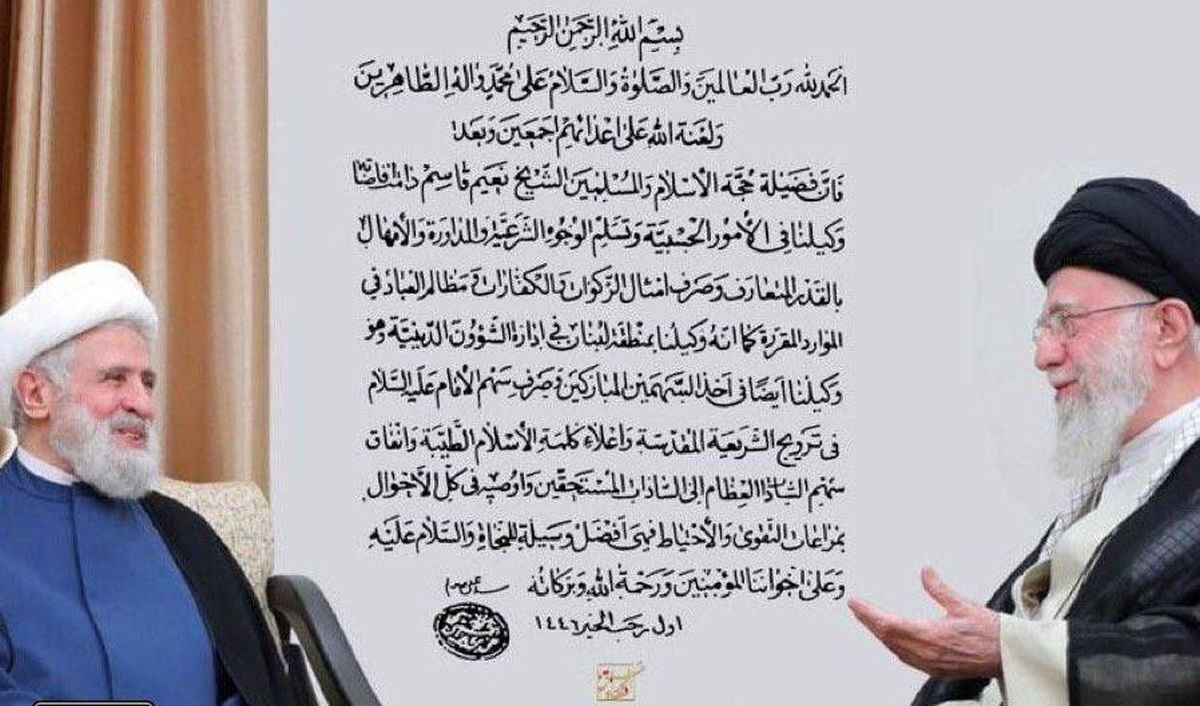 بِسْمِ اللهِ الرَّحْمنِ الرَّحيمِ
الحمد لله رَبّ العالمينَ وَالصَّلوةُ وَالسَّلامُ عَلى مُحمَّدٍ وَالهِ الطَّاهِرينَ
وَلعَنة الله عَلى اعدائهم اجمَعينَ وَبَعد
فانّ فضيلة حُجّة الاسْلام وَالمُسلِمينَ الشّيخ نعيم قاسِم دامَت افاضاته
وَكيلنا في الأمُور الحسْبيّة وَتسَلم الوجُوهِ الشّرعيّة وَالمداورة وَالأمهال
بالقدر المتعارف وَصَرف امثال الزّكوات وَالكفارات وَ مَظالم العباد في
الموارد المقررة كما انّهُ وَكيلُنا بمنطقة لبنان في ادارة الشّؤون الدّينيّة وَهو
وَكيلنا ايضًا في اَخذ السّهمين المباركين وَصَرفِ سَهم الأمام عَليهِ السَّلام
في ترويج الشريعة المقدّسة وَاعلاءِ كلمةِ الأسلام الطّيّبة وَانفاق
سَهم السّادة العِظام الى السّادات المُسْتَحقّين وَاوصيه في كلّ الأحْوالِ
بمراعات التّقوىٰ وَالأحتياط فهيَ اَفضل وَسيلةٍ للنجاة وَالسَّلام عَليهِ
وَعَلى اخواننا المؤمنينَ وَرَحمَةُ اللهِ وَبَركاتُه
اول رجب الخير ١٤٤٦